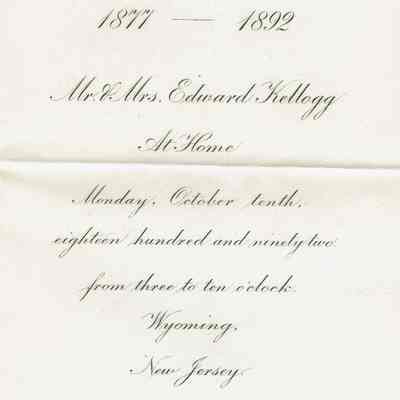 1877 — 1892
Mr. & Mrs. Edward Kellogg
At Home
Monday, October tenth,
eighteen hundred and ninety two
from three to ten o'clock.
Wyoming,
New Jersey.